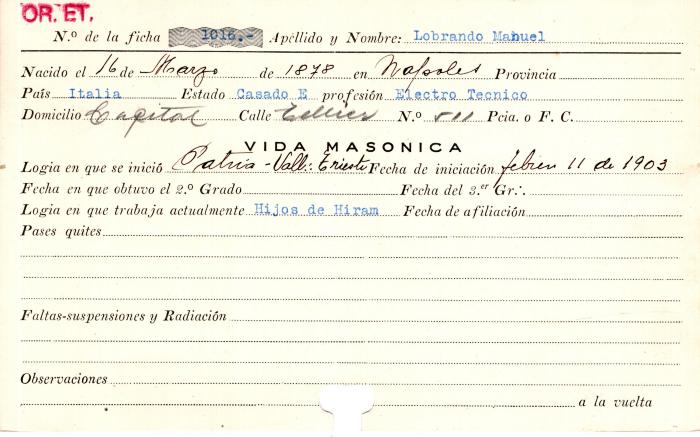 OR. ET.
N.º de la ficha 1016.- Apéllido y Nombre: Lobrando Manuel
Nacido el 16 de Marzo de 1878 en Napoles Provincia
País Italia Estado Casado E profesión Electro Tecnico
Domicilio Capital Calle N.º 511 Pcia. o F. C.
VIDA MASONICA
Logia en que se inició Patria - Vall∴ Trieste Fecha de iniciación febrer 11 de 1903
Fecha en que obtuvo el 2.º Grado Fecha del 3.er Gr∴
Logia en que trabaja actualmente Hijos de Hiram Fecha de afiliación
Pases quites
Faltas-suspensiones y Radiación
Observaciones
a la vuelta